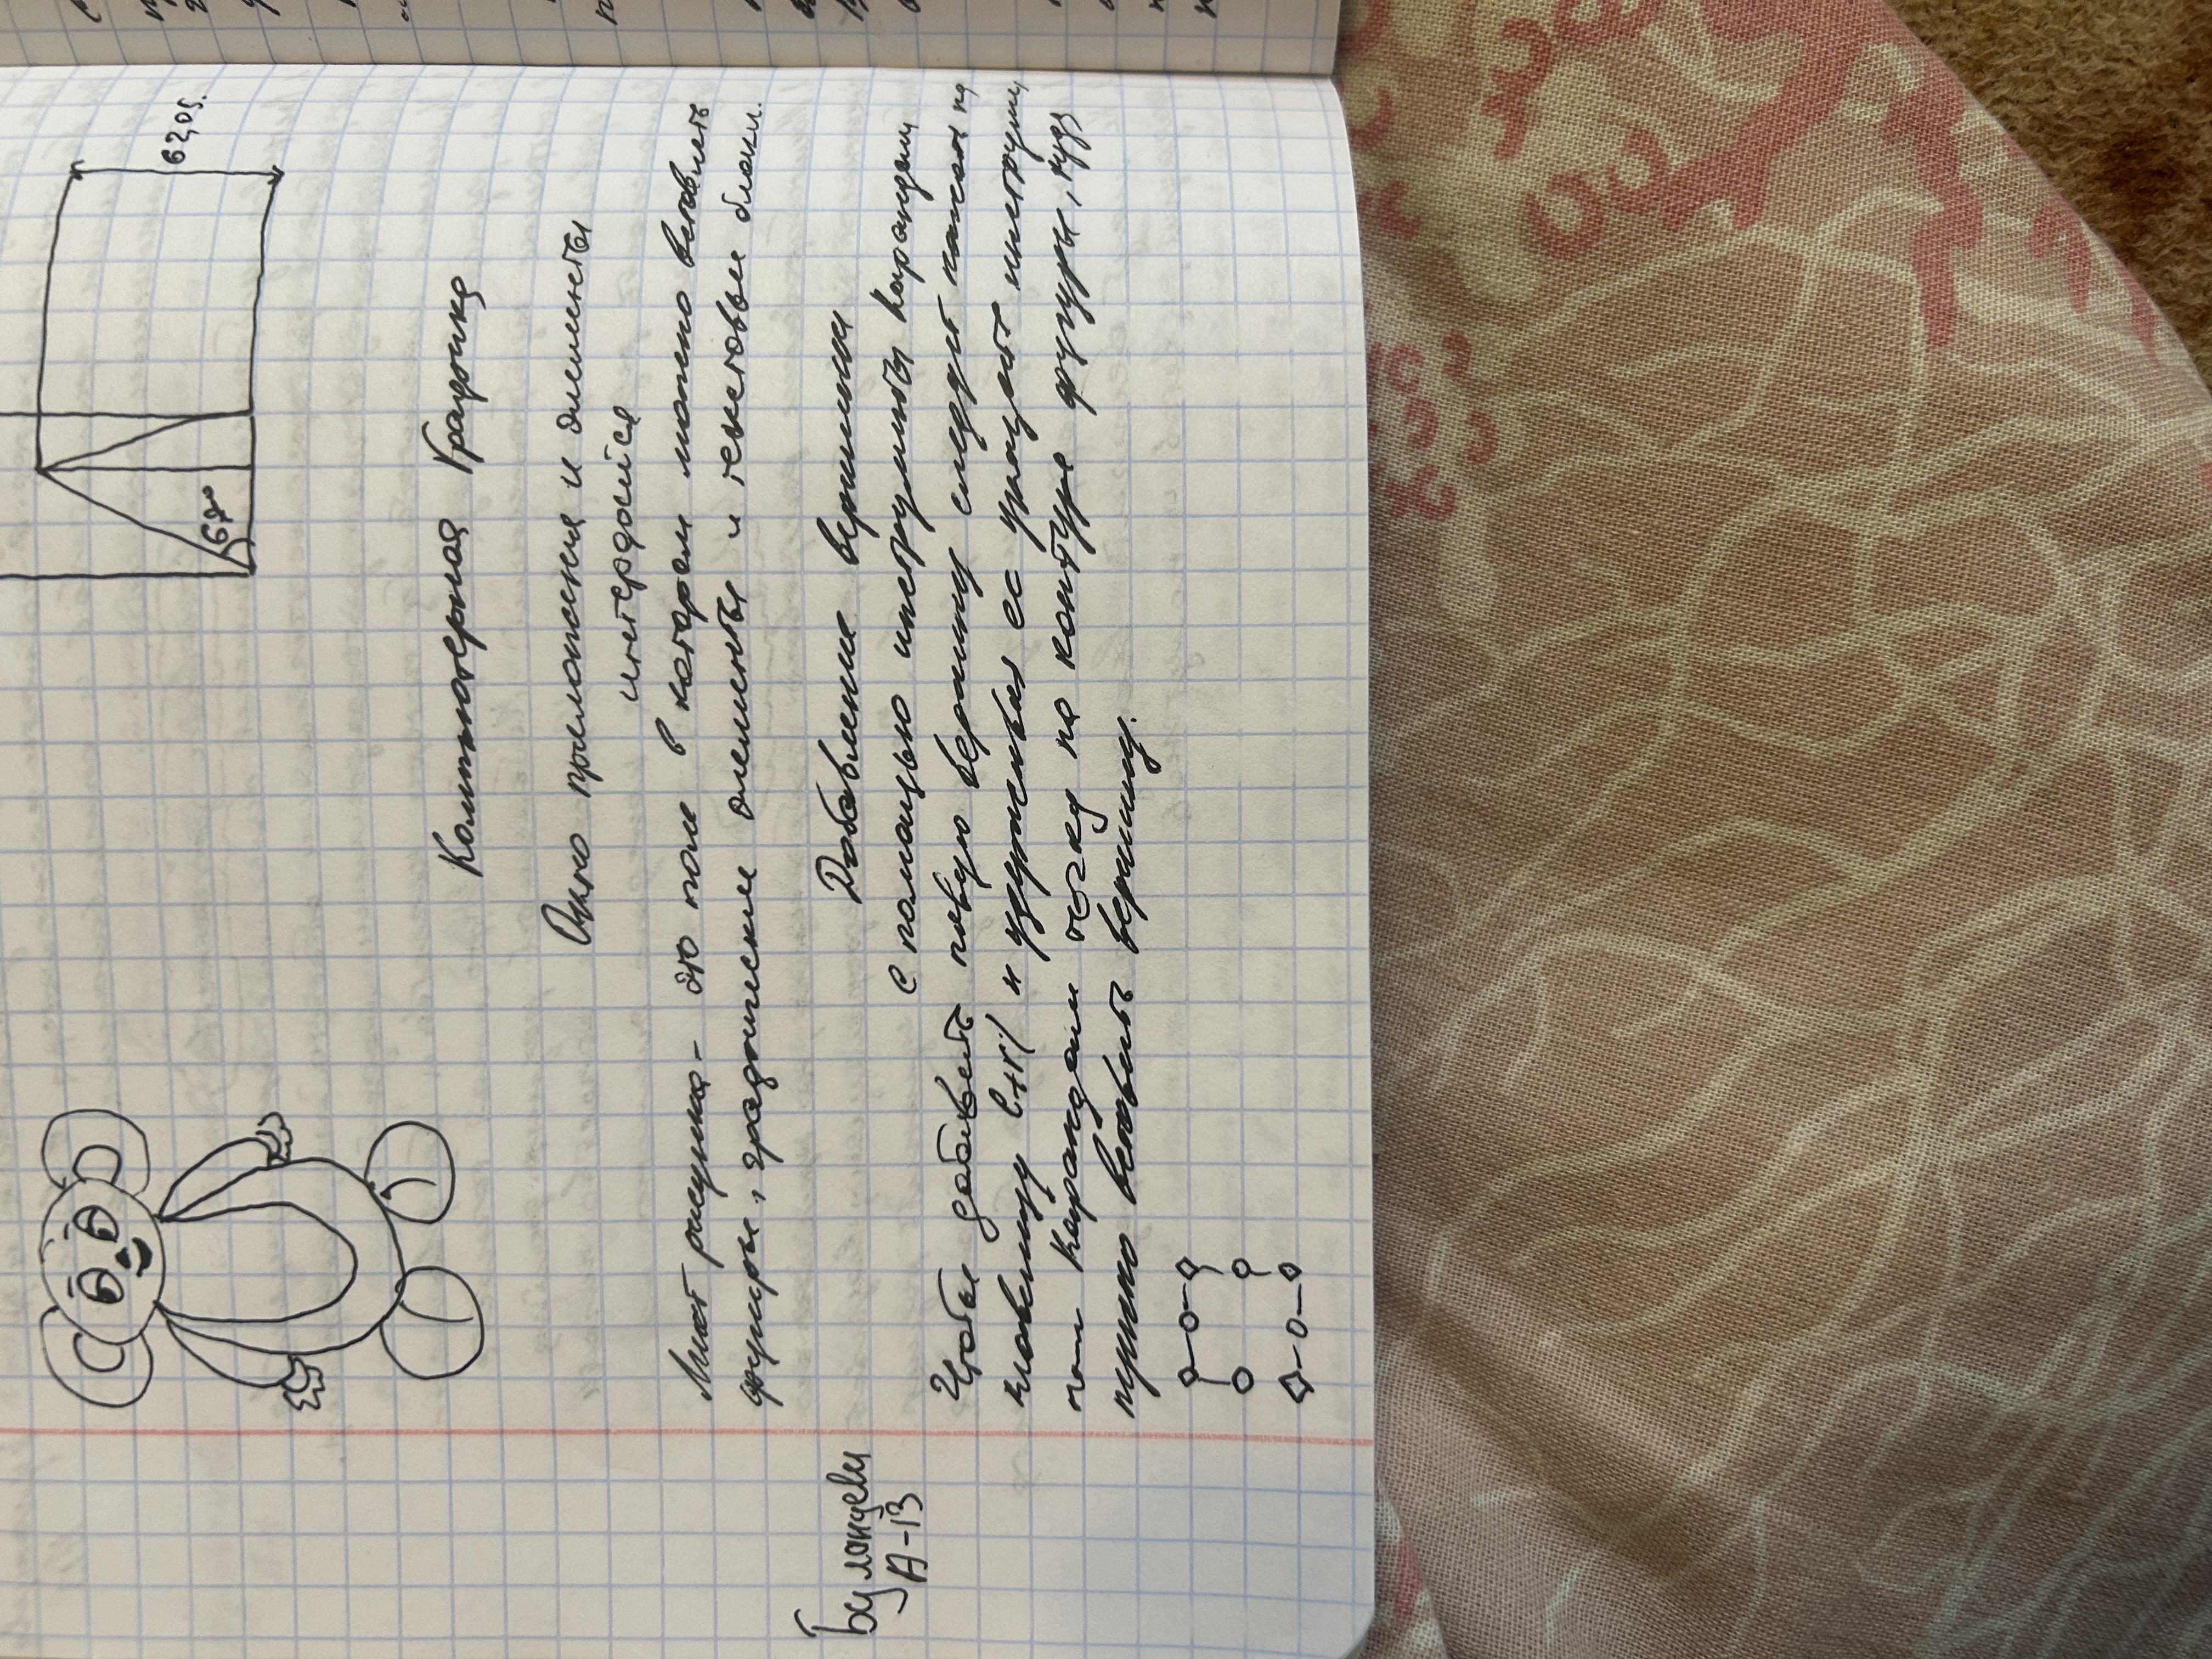 62,05.
62°
Компьютерная Графика
Окно приложения и элименты
интерфейса
Лист рисунка - это поле в котором можно вставлять
фигуры, графические элементы и текстовые блоки.
Добавление вершины
С помощью инструмента Карандаш
Чтобы добавить новую вершину следует нажать на
клавишу и удерживая ее
карандаш точку на контуре фигуры, куда
нужно вставить вершину.
А-13